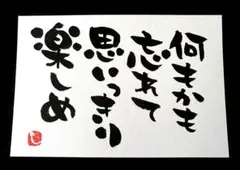 何もかも
忘れて
思いっきり
楽しめ